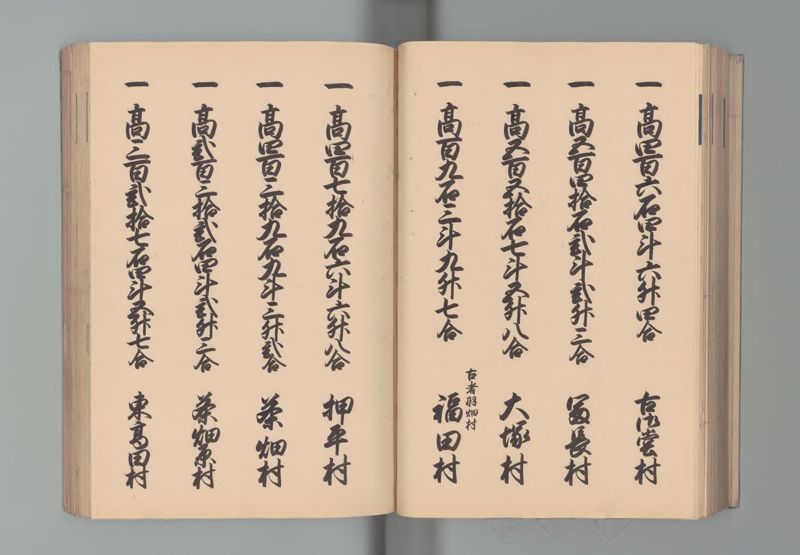 一 高四百六石四斗六升四合 古御堂村
一 高五百四拾石弐斗弐升三合 富長村
一 高五百五拾石七斗五升八合 大塚村
一 高百九石三斗九升七合 福田村
古者羽畑村
一 高四百七拾九石六斗六升八合 押平村
一 高四百三拾九石九斗三升弐合 茶畑村
一 高弐百三拾弐石四斗弐升三合 茶畑原村
一 高三百弐拾七石四斗五升七合 東高田村